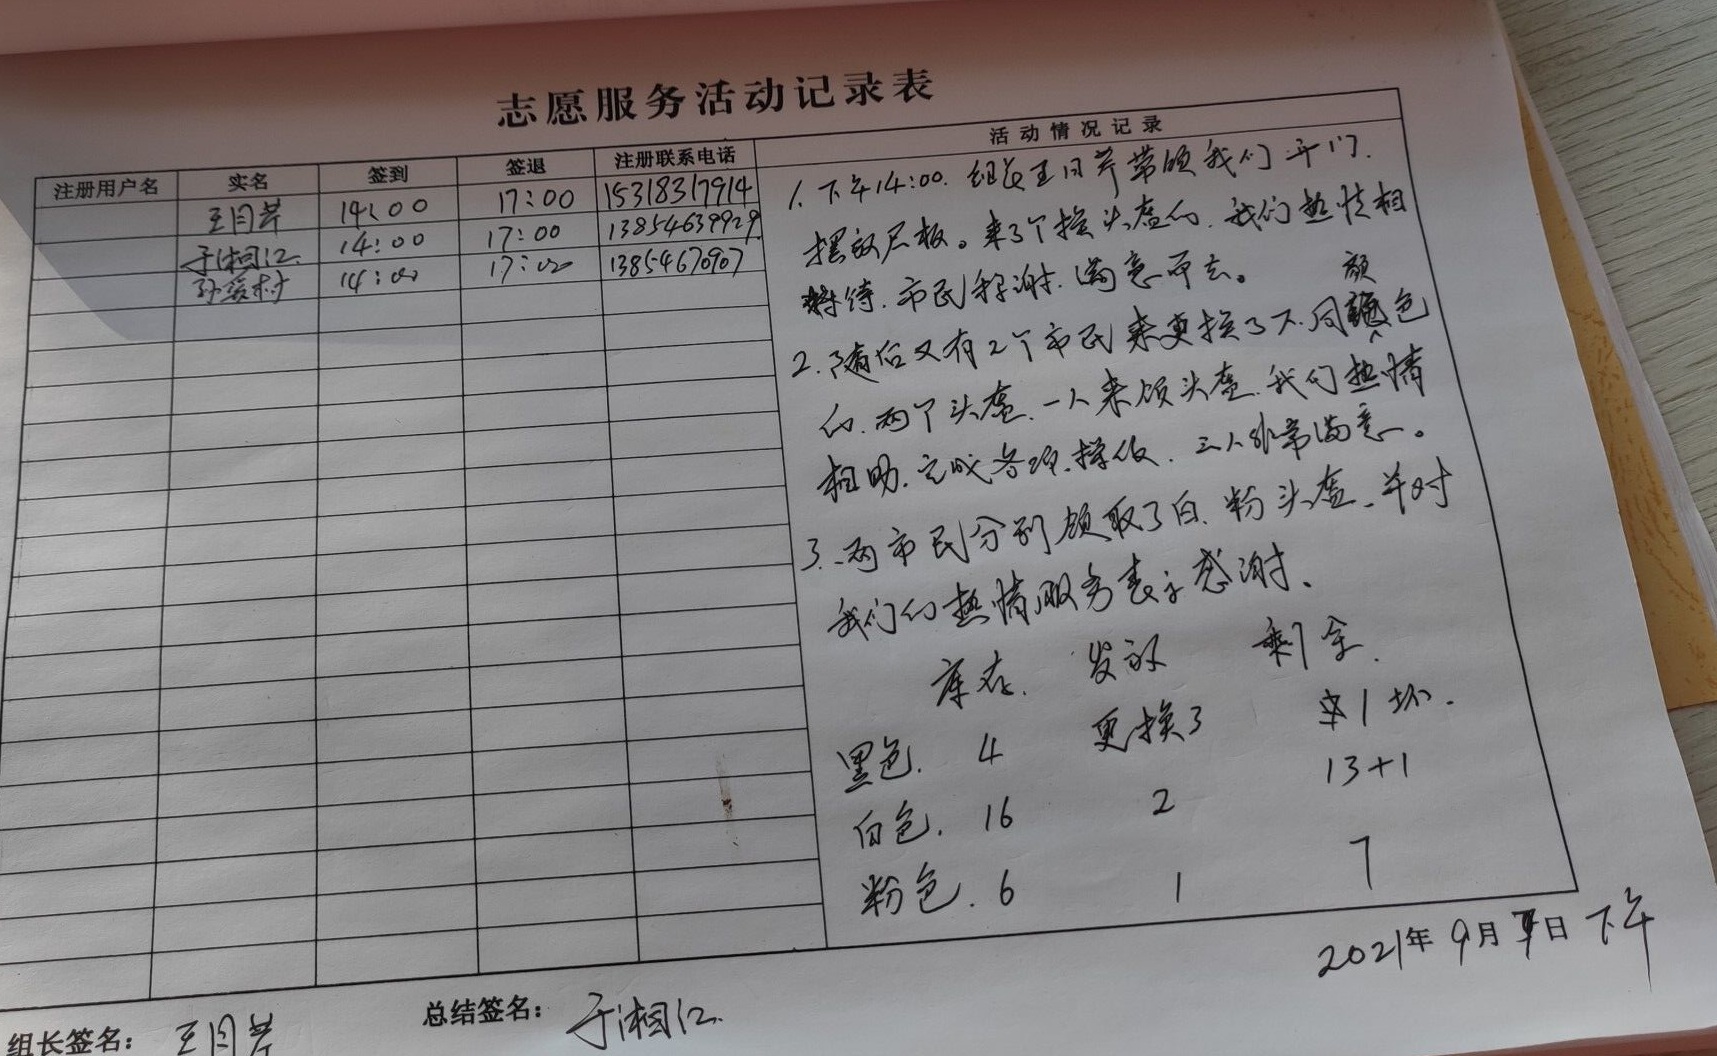 志愿服务活动记录表
注册用户名 实名 签到 签退 注册联系电话 活动情况记录
王月芹 14:00 17:00 15318317914
于湘江 14:00 17:00 13854639929
14:00 17:00 13854670907
1. 下午14:00. 组长王月芹带领我们开门.
摆放展板。来了个换头盔的. 我们热情相
待. 市民称谢. 满意而去。
2. 随后又有2个市民来更换了不同颜色
的. 两个头盔. 一人来领头盔. 我们热情
相助. 完成各项操作. 三人非常满意。
3. 两市民分别领取了白. 粉头盔. 并对
我们的热情服务表示感谢.
库存. 发放 剩余.
黑色. 4 更换3 1坏.
白色. 16 2 13+1
粉色. 6 1 7
2021年9月日下午
组长签名: 王月芹 总结签名: 于湘江